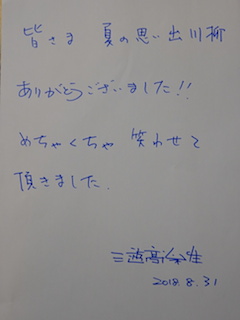 皆さま 夏の思い出川柳
ありがとうございました!!
めちゃくちゃ 笑わせて
頂きました.
2018.8.31